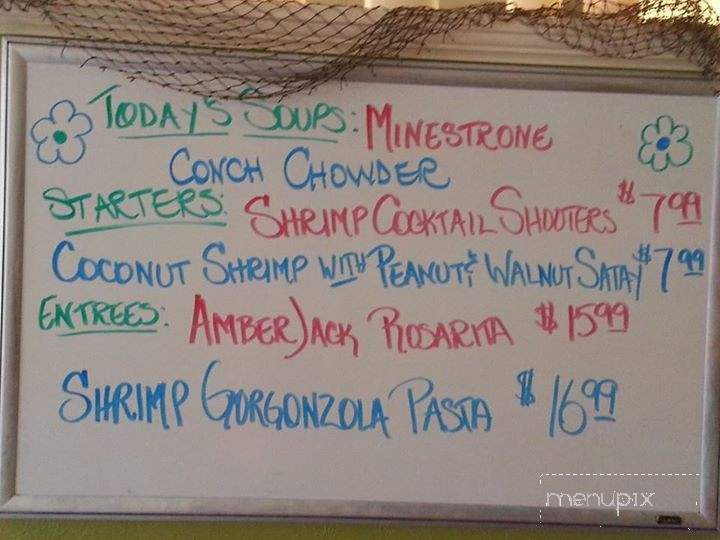 TODAY'S SOUPS: MINESTRONE
CONCH CHOWDER
STARTERS: SHRIMP COCKTAIL SHOOTERS $7.99
COCONUT SHRIMP WITH PEANUT & WALNUT SATAY $7.99
ENTREES: AMBERJACK ROSARITA $15.99
SHRIMP GORGONZOLA PASTA $16.99
menupix